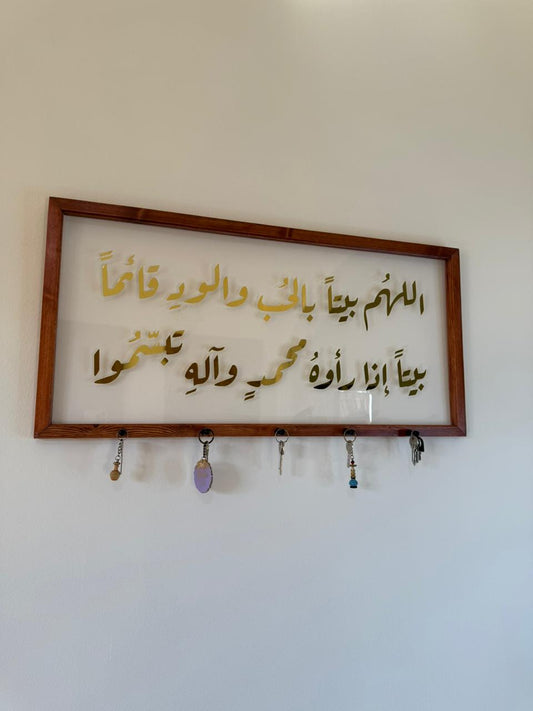 اللهُم بيتاً بالحُب والودِ قائماً
بيتاً إذا رأوهُ محمدٍ وآلهِ تبسّمُوا